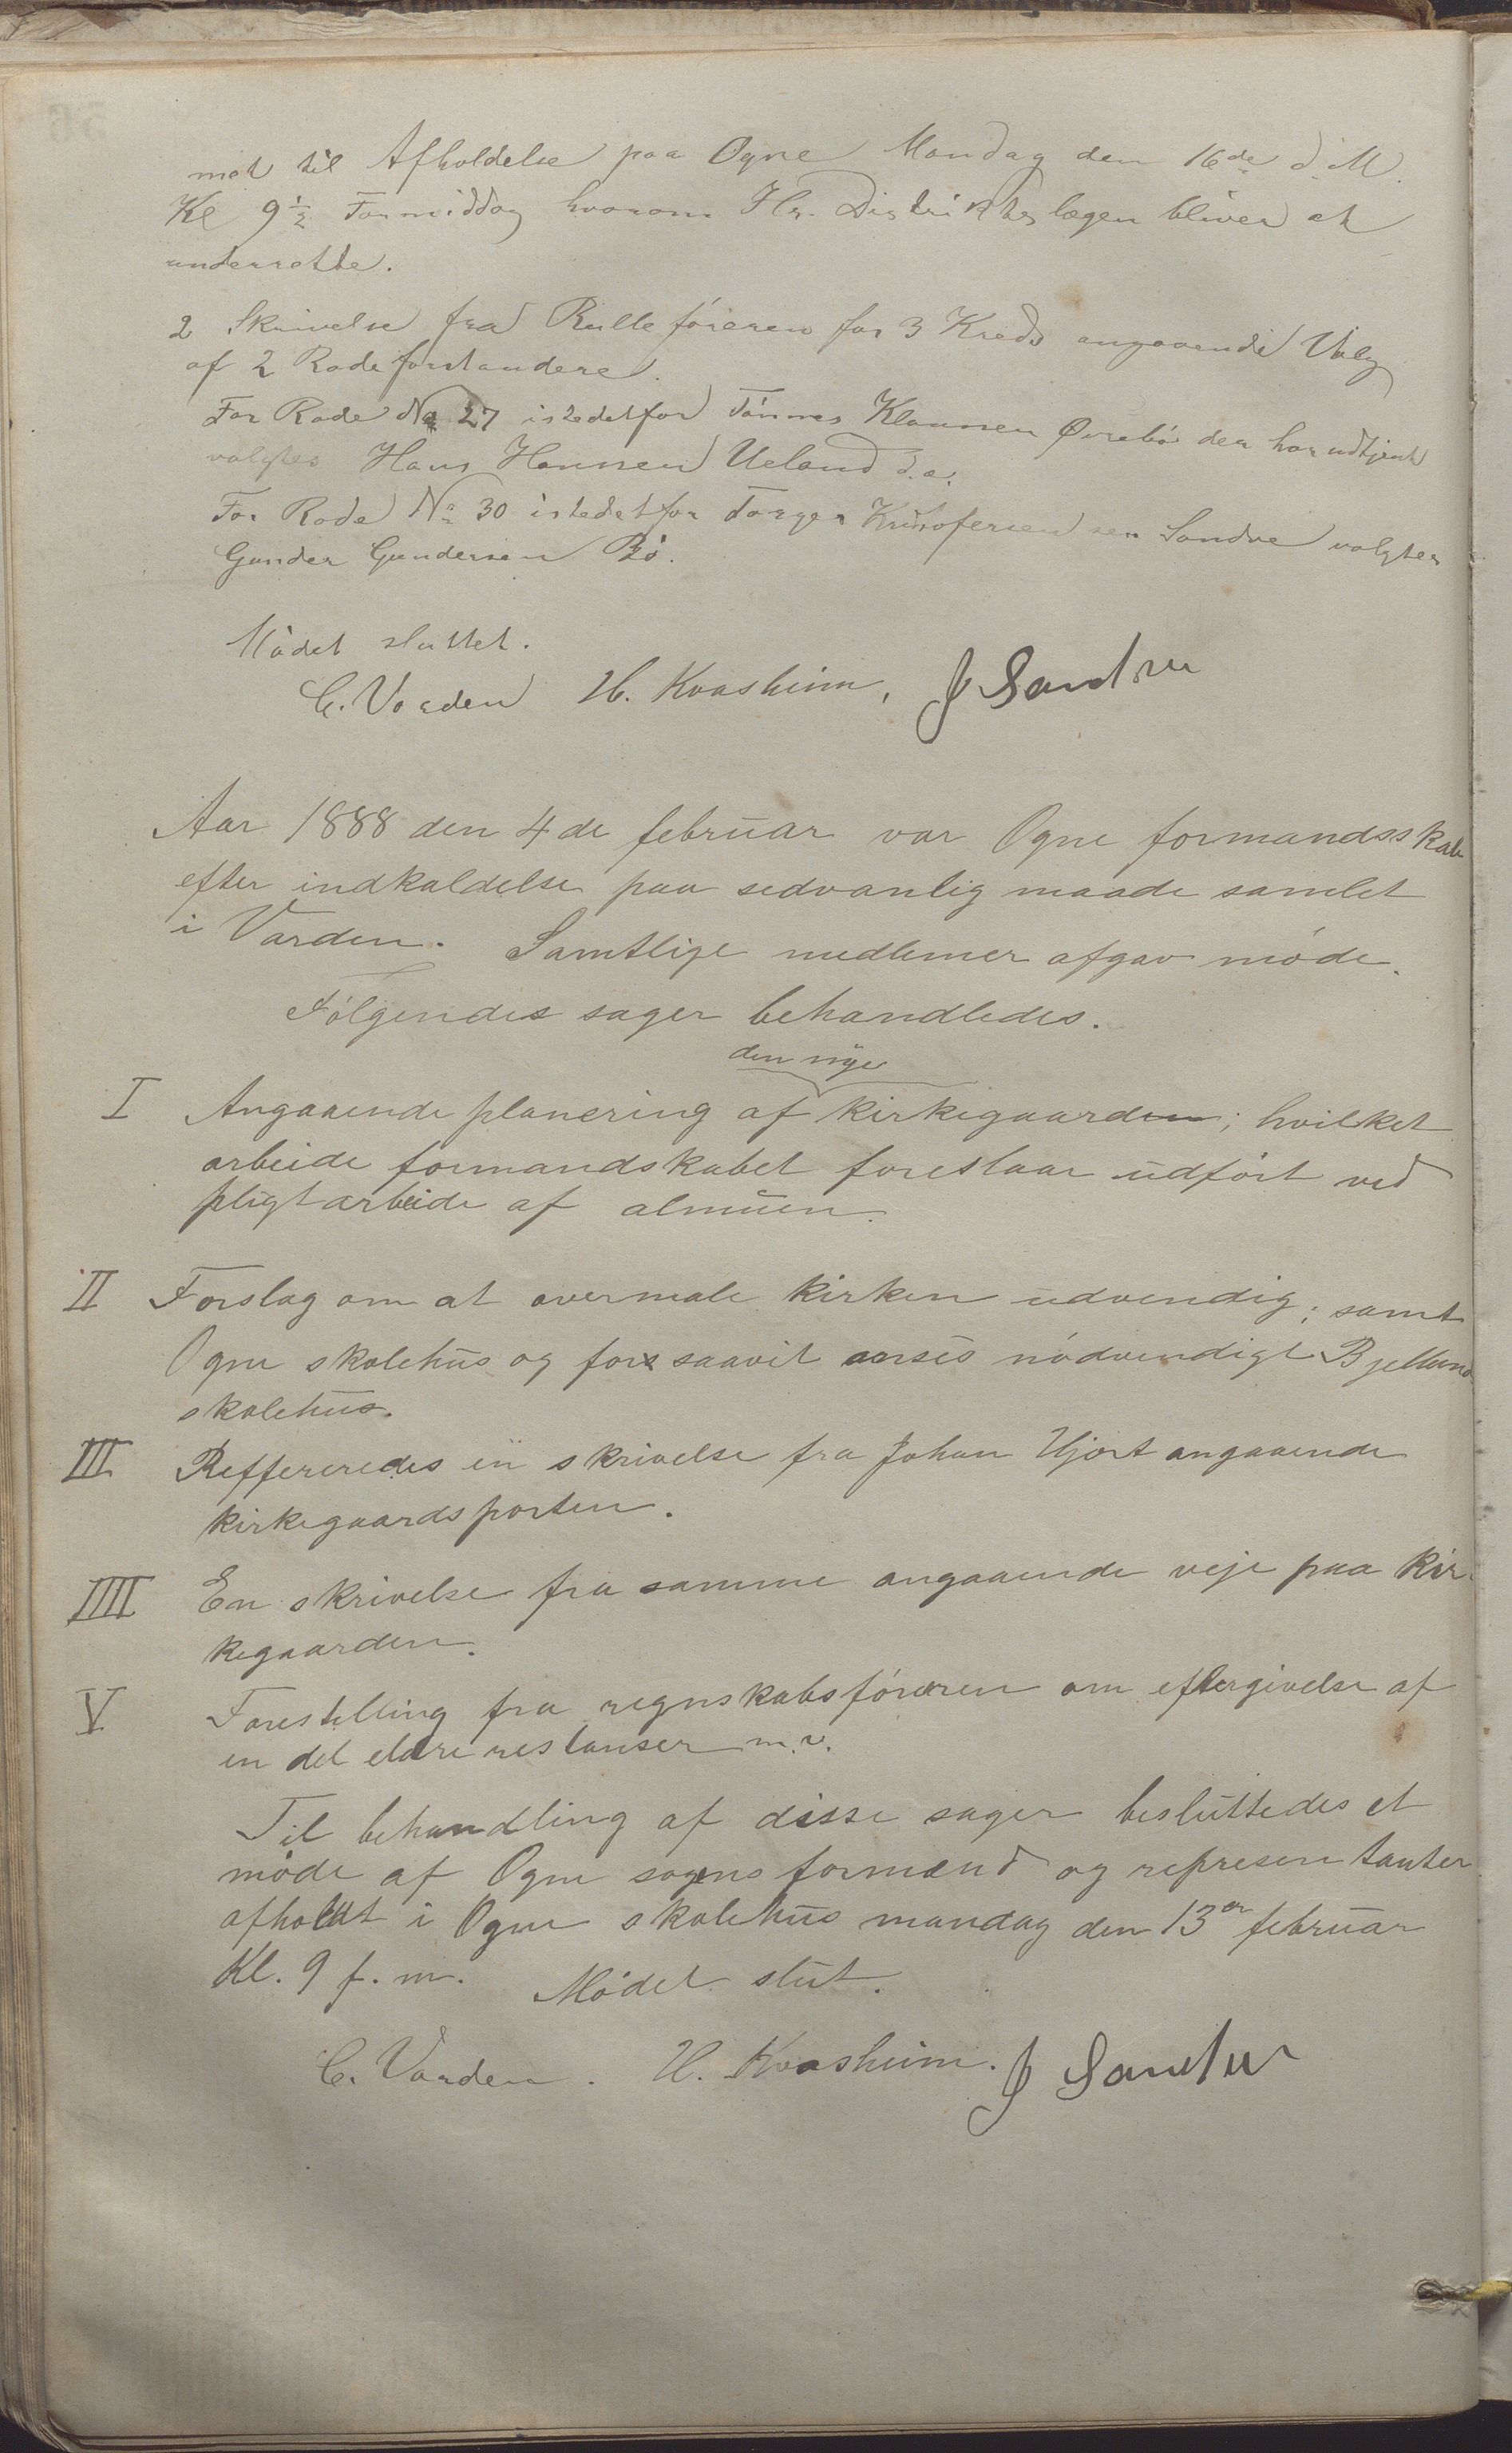 met til Afholdelse paa Ogne Mandag den 16de d.M.
Kl 9½ Formiddag hvorom Hr. Distriktslægen bliver at
underrette.
2 Skrivelse fra Rulleföreren for 3 Kreds angaaende Valg
af 2 Rodeforstandere.
For Rode No 27 istedetfor Tönnes Klaussen Örebö der har udtjent
valgtes Hans Hanssen Ueland d.æ.
For Rode No 30 istedetfor Torger Kristofersen Sandve valgtes
Gunder Gundersen Bö.
Mödet sluttet.
C. Varden H. Kvasheim, J Sandve
Aar 1888 den 4de februar var Ogne formandsskab
efter indkaldelse paa sedvanlig maade samlet
i Varden. Samtlige medlemer afgav möde.
Fölgendes sager behandledes.
den nye
I Angaaende planering af kirkegaarden; hvilket
arbeide formandskabet foreslaar udfört ved
pligtarbeide af almuen.
II Forslag om at overmale kirken udvendig; samt
Ogne skolehus og for saavit anses nödvendigt Bjelland
skolehus.
III Reffereredes en skrivelse fra Johan Hjort angaaende
kirkegaardsporten.
IIII En skrivelse fra samme angaaende veje paa kir-
kegaarden.
V Forestelling fra regnskabsföreren om eftergivelse af
en del eldre restanser m.v.
Til behandling af disse sager besluttedes et
möde af Ogne sogns formænd og representanter
afholdt i Ogne skolehus mandag den 13de februar
Kl. 9 f.m. Mödet slut.
C. Varden. H. Kvasheim. J Sandve